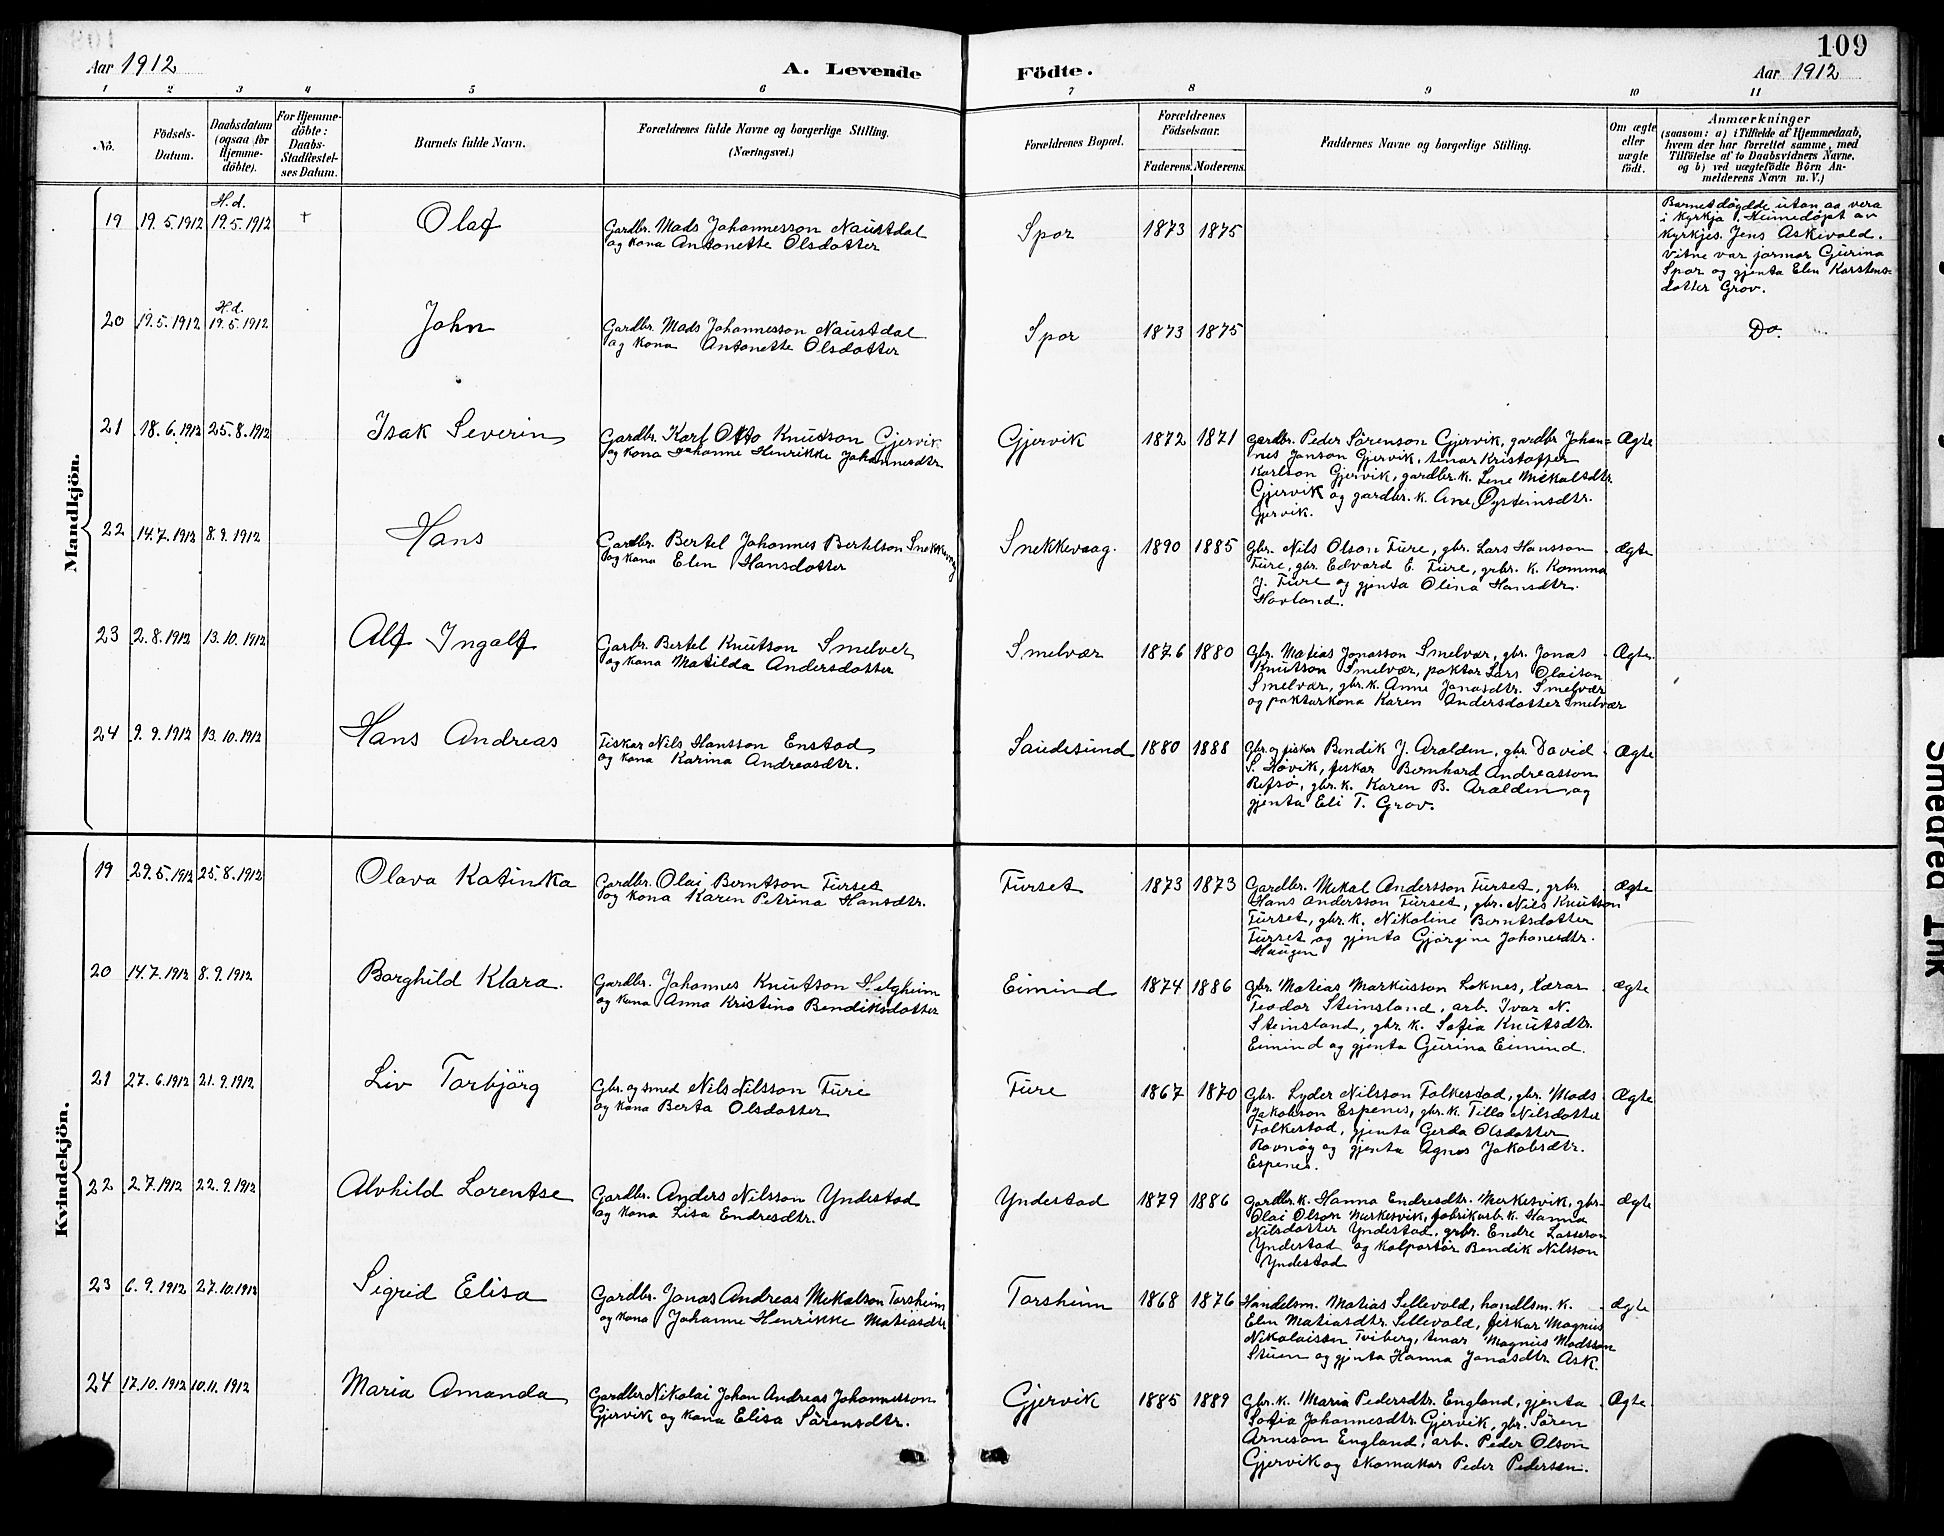 109
Aar 1912
A. Levende Födte.
Aar 1912
1 2 3 4 5 6 7 8 9 10 11
No.
Födsels-
Datum.
Daabsdatum
(ogsaa for
Hjemme-
döbte).
For Hjemme-
döbte:
Daabs-
Stadfæstel-
ses Datum.
Barnets fulde Navn.
Forældrenes fulde Navne og borgerlige Stilling.
(Næringsvei.)
Forældrenes Bopæl.
Forældrenes
Födselsaar.
Faderens. Moderens.
Faddernes Navne og borgerlige Stilling.
Om ægte
eller
uægte
födt.
Anmærkninger
(saasom: a) i Tilfælde af Hjemmedaab,
hvem der har forrettet samme, med
Tilföielse af to Daabsvidners Navne,
og b) ved uægtefödte Börn An-
melderens Navn m. V.)
Mandkjön.
19 19.5.1912 H.d. 19.5.1912 + Olaf
Gardbr. Mads Johannesson Naustdal
og kona Antonette Olsdotter
Spor 1873 1875
Barnet døydde utan aa vera
i kyrkja. Heimedøpt av
kyrkjes. Jens Askevold.
Vitne var jormor Gurina
Spor og gjenta Elen Karstens-
dotter Grov.
20 19.5.1912 H.d. 19.5.1912 John
Gardbr. Mads Johannesson Naustdal
og kona Antonette Olsdotter
Spor 1873 1875
Do.
21 18.6.1912 25.8.1912 Isak Severin
Gardbr. Karl Otto Knutson Gjervik
og kona Johanne Henrikke Johannesdtr
Gjervik 1872 1871
Gardbr. Peder Sörenson Gjervik, gardbr Johan-
nes Janson Gjervik, tenar Kristoffer
Karlson Gjervik, gardbr.k. Lene Mikalsdtr.
Gjervik og gardbr.k. Ane Øysteinsdtr.
Gjervik.
Ægte
22 14.7.1912 8.9.1912 Hans
Gardbr. Bertel Johannes Bertelson Snekkevaag
og kona Elen Hansdotter
Snekkevaag. 1890 1885
Gbr. Nils Olson Fure, gbr. Lars Hansson
Fure, gbr Edvard E. Fure, grbr. k. Komma
J. Fure og gjenta Olina Hansdtr.
Hovland.
Ægte
23 2.8.1912 13.10.1912 Alf Ingolf
Garbr. Bertel Knutson Smelver
og kona Matilda Andersdotter
Smelvær 1876 1880
Gbr. Matias Jonasson Smelvær, gbr. Jonas
Knutson Smelvær, paktar Lars Olaison
Smelvær, gbr.k. Anne Jonasdtr. Smelvær
og paktarkona Karen Andersdotter Smelvær
Ægte.
24 9.9.1912 13.10.1912 Hans Andreas
Fiskar Nils Hansson Enstad
og kona Karina Andreasdtr.
Saudesund 1880 1888
Gbr. og fiskar Bendik J. Aralden, gbr. David
S. Høvik, fiskar Bernhard Andreasson
Refsø, gbr. k. Karen B. Aralden, og
gjenta Eli T. Grov.
Ægte
Kvindekjön.
19 29.5.1912 25.8.1912 Olava Katinka
Gardbr. Olai Berntson Furset
og kona Karen Petrina Hansdtr.
Furset 1873 1873
Gardbr. Mikal Andersson Furset, grbr.
Hans Andersson Furset, gbr. Nils Knutson
Furset, gbr. k. Nikoline Berntsdotter
Furset og gjenta Gjørgine Johanesdtr.
Haugen
Ægte
20 14.7.1912 8.9.1912 Borghild Klara.
Gardbr. Johannes Knutson Helgheim
og kona Anna Kristina Bendiksdotter
Eimind 1874 1886
Gbr. Matias Markusson Loknes, lærar
Teodor Steinsland, arb. Ivar N.
Steinsland, gbr. k. Sofia Knutsdtr.
Eimind og gjenta Gurina Eimind.
ægte
21 27.6.1912 21.9.1912 Liv Torbjörg
Gbr. og smed Nils Nilsson Fure
og kona Berta Olsdotter
Fure 1867 1870
Gbr. Lyder Nilsson Folkestad, gbr. Mads
Jakobson Espenes, gbr. k. Tilla Nilsdotter
Folkestad, gjenta Gerda Olsdotter
Ravnøy og gjenta Agnes Jakobsdtr.
Espenes.
Ægte
22 2.7.1912 22.9.1912 Alvhild Lorentse
Gardbr. Anders Nilsson Yndestad
og kona Lisa Endresdtr.
Yndestad 1879 1886
Gardbr.k. Hanna Endresdtr. Merkesvik, gbr.
Olai Olson Merkesvik, fabrikarb. k. Hanna
Nilsdotter Yndestad, grbr. Endre Lasseson
Yndestad og kolportør Bendik Nilsson
Yndestad
Ægte
23 6.9.1912 27.10.1912 Sigrid Elisa
Gardbr. Jonas Andreas Mikalson Torsheim
og kona Johanne Henrikke Matiasdtr
Torsheim 1868 1876
Handelsm. Matias Sellevold, handlsm. k.
Elen Matiasdtr. Sellevold, fiskar Magnus
Nikolaison Tviberg, tenar Magnus Madsson
Stuen og gjenta Hanna Jonasdtr. Ask
Ægte
24 17.10.1912 10.11.1912 Maria Amanda
Gardbr Nikolai Johan Andreas Johannesson
Gjervik og kona Elisa Sörensdtr.
Gjervik 1885 1889
Gbr.k. Maria Pedersdtr. England, gjenta
Sofia Johannesdtr. Gjervik, gbr. Sören
Arneson England, arb. Peder Olson
Gjervik og skomakar Peder Pedersen.
Ægte.
Smedred Ink